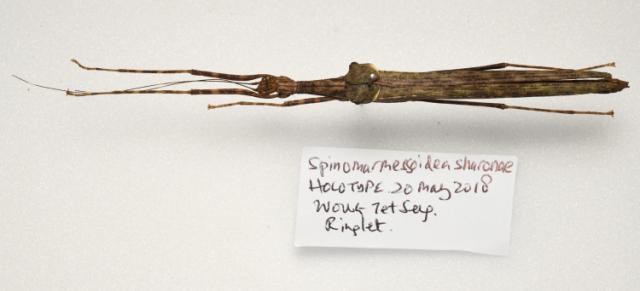 Spinomarmessoidea sharonae
HOLOTYPE. 20 May 2018
Wong Tet Seng.
Ringlet.